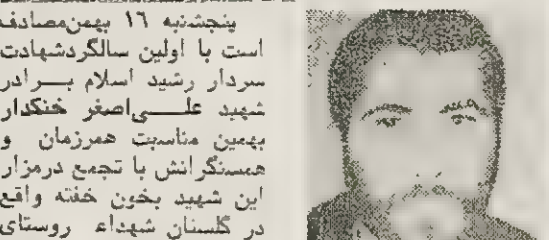 پنجشنبه ۱۶ بهمن‌مصادف
است با اولین سالگردشهادت
سردار رشید اسلام بـــرادر
شهید علـــی‌اصغر خنکدار
بهمین مناسبت همرزمان و
همسنگرانش با تجمع درمزار
این شهید بخون خفته واقع
در گلستان شهداء روستای